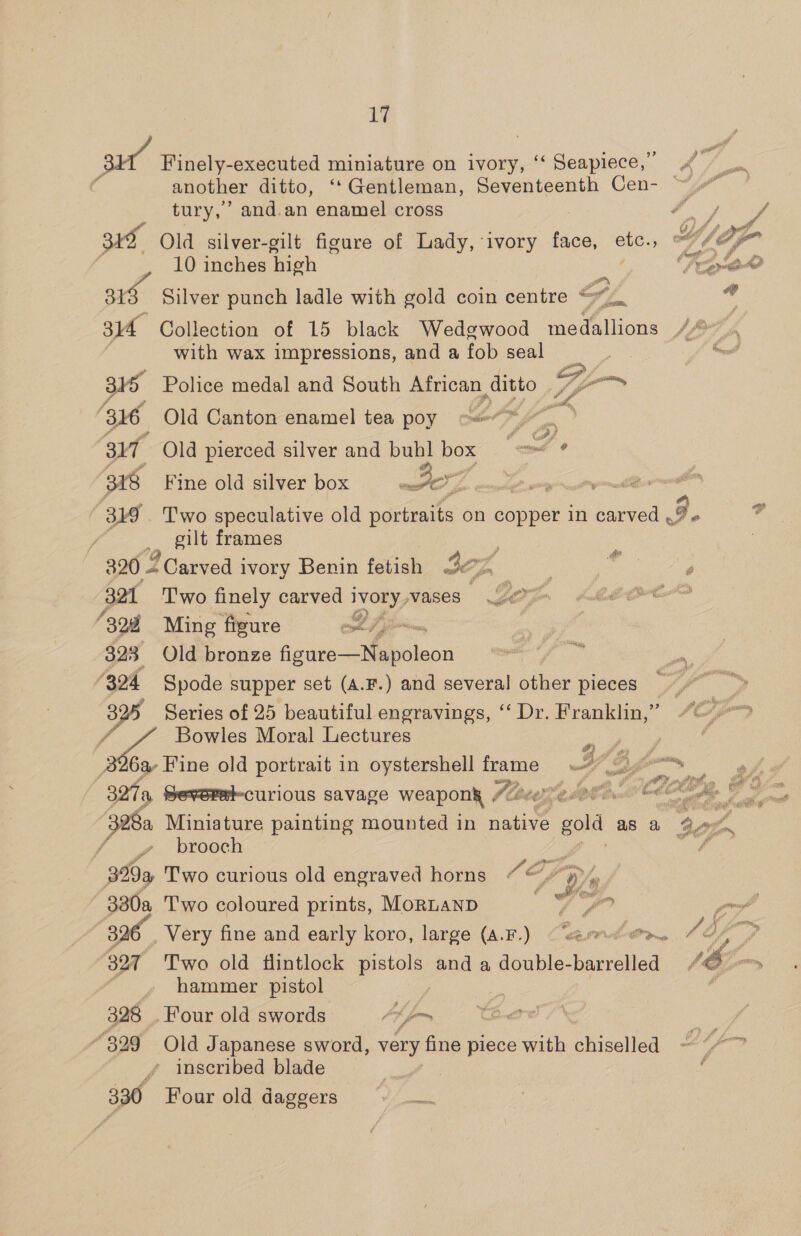 17
311 Finely-executed miniature on ivory, “Seapiece,”
another ditto, “Gentleman, Seventeenth Cen-
tury,” and an enamel cross
312 Old silver-gilt figure of Lady, ivory face, etc.,
10 inches high
313 Silver punch ladle with gold coin centre
314 Collection of 15 black Wedgwood medallions
with wax impressions, and a fob seal
315 Police medal and South African ditto
316 Old Canton enamel tea poy
317 Old pierced silver and buhl box
318 Fine old silver box
319 Two speculative old portraits on copper in carved
gilt frames
320 2 Carved ivory Benin fetish
321 Two finely carved ivory vases
322 Ming figure
323 Old bronze figure—Napoleon
324 Spode supper set (A.F.) and several other pieces
325 Series of 25 beautiful engravings, “Dr. Franklin,”
Bowles Moral Lectures
326a Fine old portrait in oystershell frame
327a Several curious savage weapons
328a Miniature painting mounted in native gold as a
brooch
329a Two curious old engraved horns
330a Two coloured prints, MORLAND
326 Very fine and early koro, large (A.F.)
327 Two old flintlock pistols and a double-barrelled
hammer pistol
328 Four old swords
329 Old Japanese sword, very fine piece with chiselled
inscribed blade
330 Four old daggers